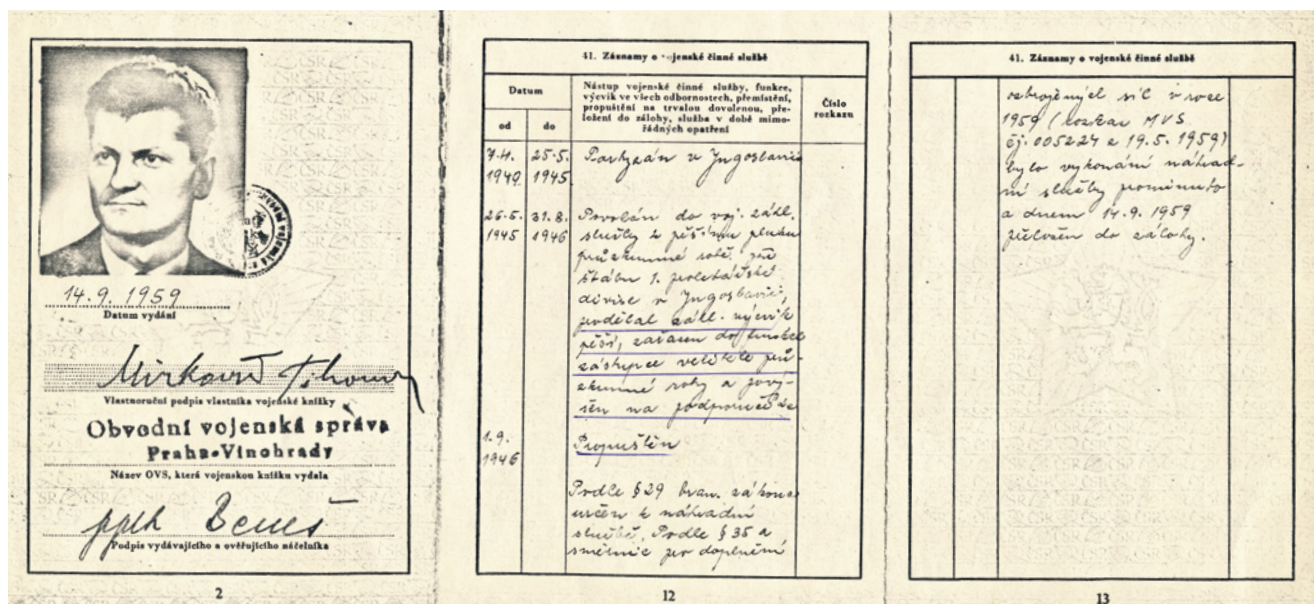 14.9.1959
Datum vydání
Vlastnoruční podpis vlastníka vojenské knížky
Obvodní vojenská správa
Praha-Vinohrady
Název OVS, která vojenskou knížku vydala
pplk Beneš
Podpis vydávajícího a ověřujícího náčelníka
2
41. Záznamy o vojenské činné službě
Datum
od
do
Nástup vojenské činné služby, funkce,
výcvik ve všech odbornostech, přemístění,
propuštění na trvalou dovolenou, pře-
ložení do zálohy, služba v době mimo-
řádných opatření
Číslo
rozkazu
25.5. Partyzán v Jugoslavii
1945
26.5. 31.8. Povolán do voj. zákl.
1945 1946 služby k pěšímu pluku
průzkumné rotě při
štábu 1. proletářské
divise v Jugoslavii,
prodělal zákl. výcvik
pěší, zařazen do funkce
zástupce velitele prů-
zkumné roty a pový-
šen na
1.9. Propuštěn
1946
Podle § 29 bran. zákona
určen k náhradní
službě. Podle § 35 a
směrnic pro doplnění
12
41. Záznamy o vojenské činné službě
ozbrojených sil v roce
1959 (rozkaz MVS
čj. 005224 z 19.5.1959)
bylo vykonání náhrad-
ní služby prominuto
a dnem 14.9.1959
převeden do zálohy.
13